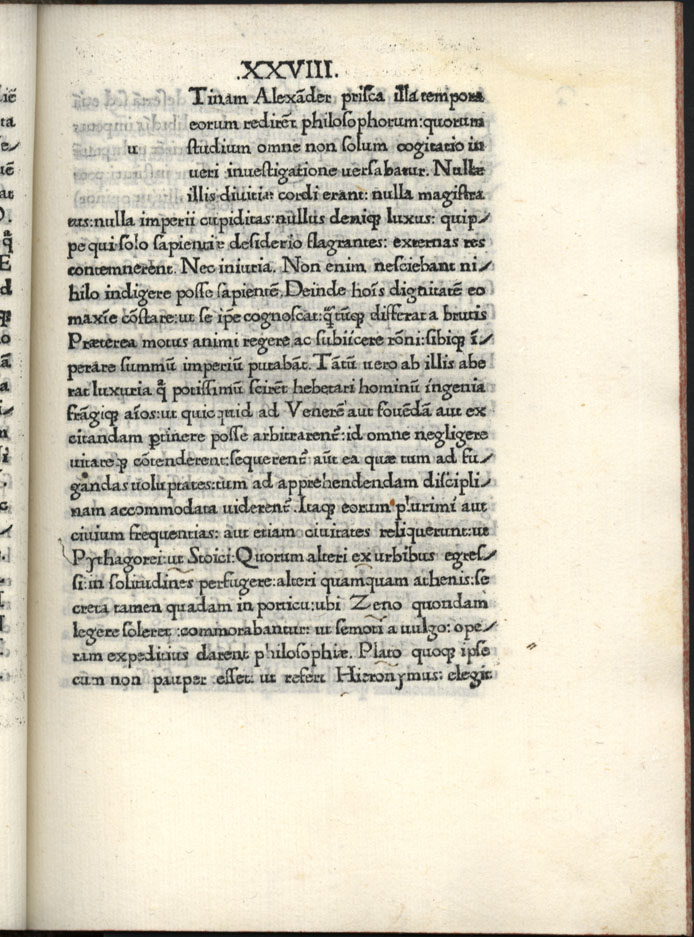 .XXVIII.
Tinam Alexãder prisca illa tempora
eorum redirẽt philosophorum:quorum
u studium omne non solum cogitatio in
ueri inuestigatione uersabatur. Nullæ
illis diuitiæ cordi erant: nulla magistra
tus:nulla imperii cupiditas:nullus deniqꝫ luxus: quip⸗
pe qui solo sapientiæ desiderio flagrantes: externas res
contemnerent. Nec iniuria. Non enim nesciebant ni⸗
hilo indigere posse sapientẽ. Deinde hoĩs dignitatẽ eo
maxĩe cõstare:ut se ip̃e cognoscat:q̃tũqꝫ differat a brutis
Præterea motus animi regere ac subiicere rõni:sibiqꝫ ĩ⸗
perare summũ imperiũ putabãt. Tãtũ uero ab illis abe
rat luxuria q̃ potissimũ scirẽt hebetari hominũ ingenia
frãgiqꝫ aĩos:ut quicquid ad Venerẽ aut fouẽdã aut ex
citandam ꝑtinere posse arbitrarent̃:id omne negligere
uitareqꝫ cõtenderent:sequerent̃ aũt ea quæ tum ad fu⸗
gandas uoluptates:tum ad apprehendendam discipli⸗
nam accommodata uiderent̃. Itaqꝫ eorum plurimi aut
ciuium frequentias: aut etiam ciuitates reliquerunt:ut
Pythagorei:ut Stoici:Quorum alteri ex urbibus egres⸗
si:in solitudines perfugere:alteri quamquam athenis:se
creta tamen quadam in porticu:ubi Zeno quondam
legere soleret :commorabantur: ut semoti a uulgo: ope⸗
ram expeditius darent philosophiæ. Plato quoqꝫ ipse
cum non pauper esset: ut refert Hieronymus: elegit